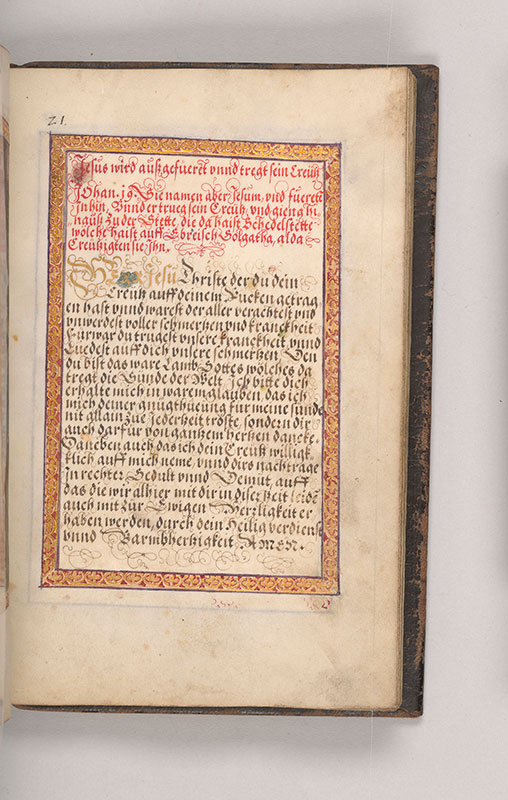 21.
Jesus wird außgefueret vnnd tregt sein Creutz
Johan. 19 Sie namen aber Jesum, vnd fuerett
In hin, Vnnd er trueg sein Creutz, vnd gieng hi
nauß zu der Stette, die da haist Schedelstette
wolche haist auff Ebreisch Golgatha, alda
Creutzigten sie Ihn,
Jesu Christe der du dein
Creutz auff deinem Rucken getrag
en hast vnnd warest der aller verachtest vnd
vnwerdest voller schmertzen vnd kranckheit
Fürwar du trugest vnsere kranckheit vnnd
Luedest auff dich vnsere schmertzen, Den
du bist das ware Lamb Gottes wölches da
tregt die Sünde der Welt, Ich bitte dich
erhalte mich in warem glauben das ich
mich deiner gnugthueung für meine sunde
nit allain zue Jederheit tröste, sondern dir
auch darfür von gantzem hertzen dancke.
Daneben auch das ich dein Creutz willigk
klich auff mich neme, vnnd dirs nachtrage
in rechter Gedult vnnd Demut, auff
das die wir alhier mit dir in diser Zeit leidē
auch mit zur Ewigen Herrligkeit er
haben werden, durch dein Heilig verdienst
vnnd Barmhertzigkeit AMEN.